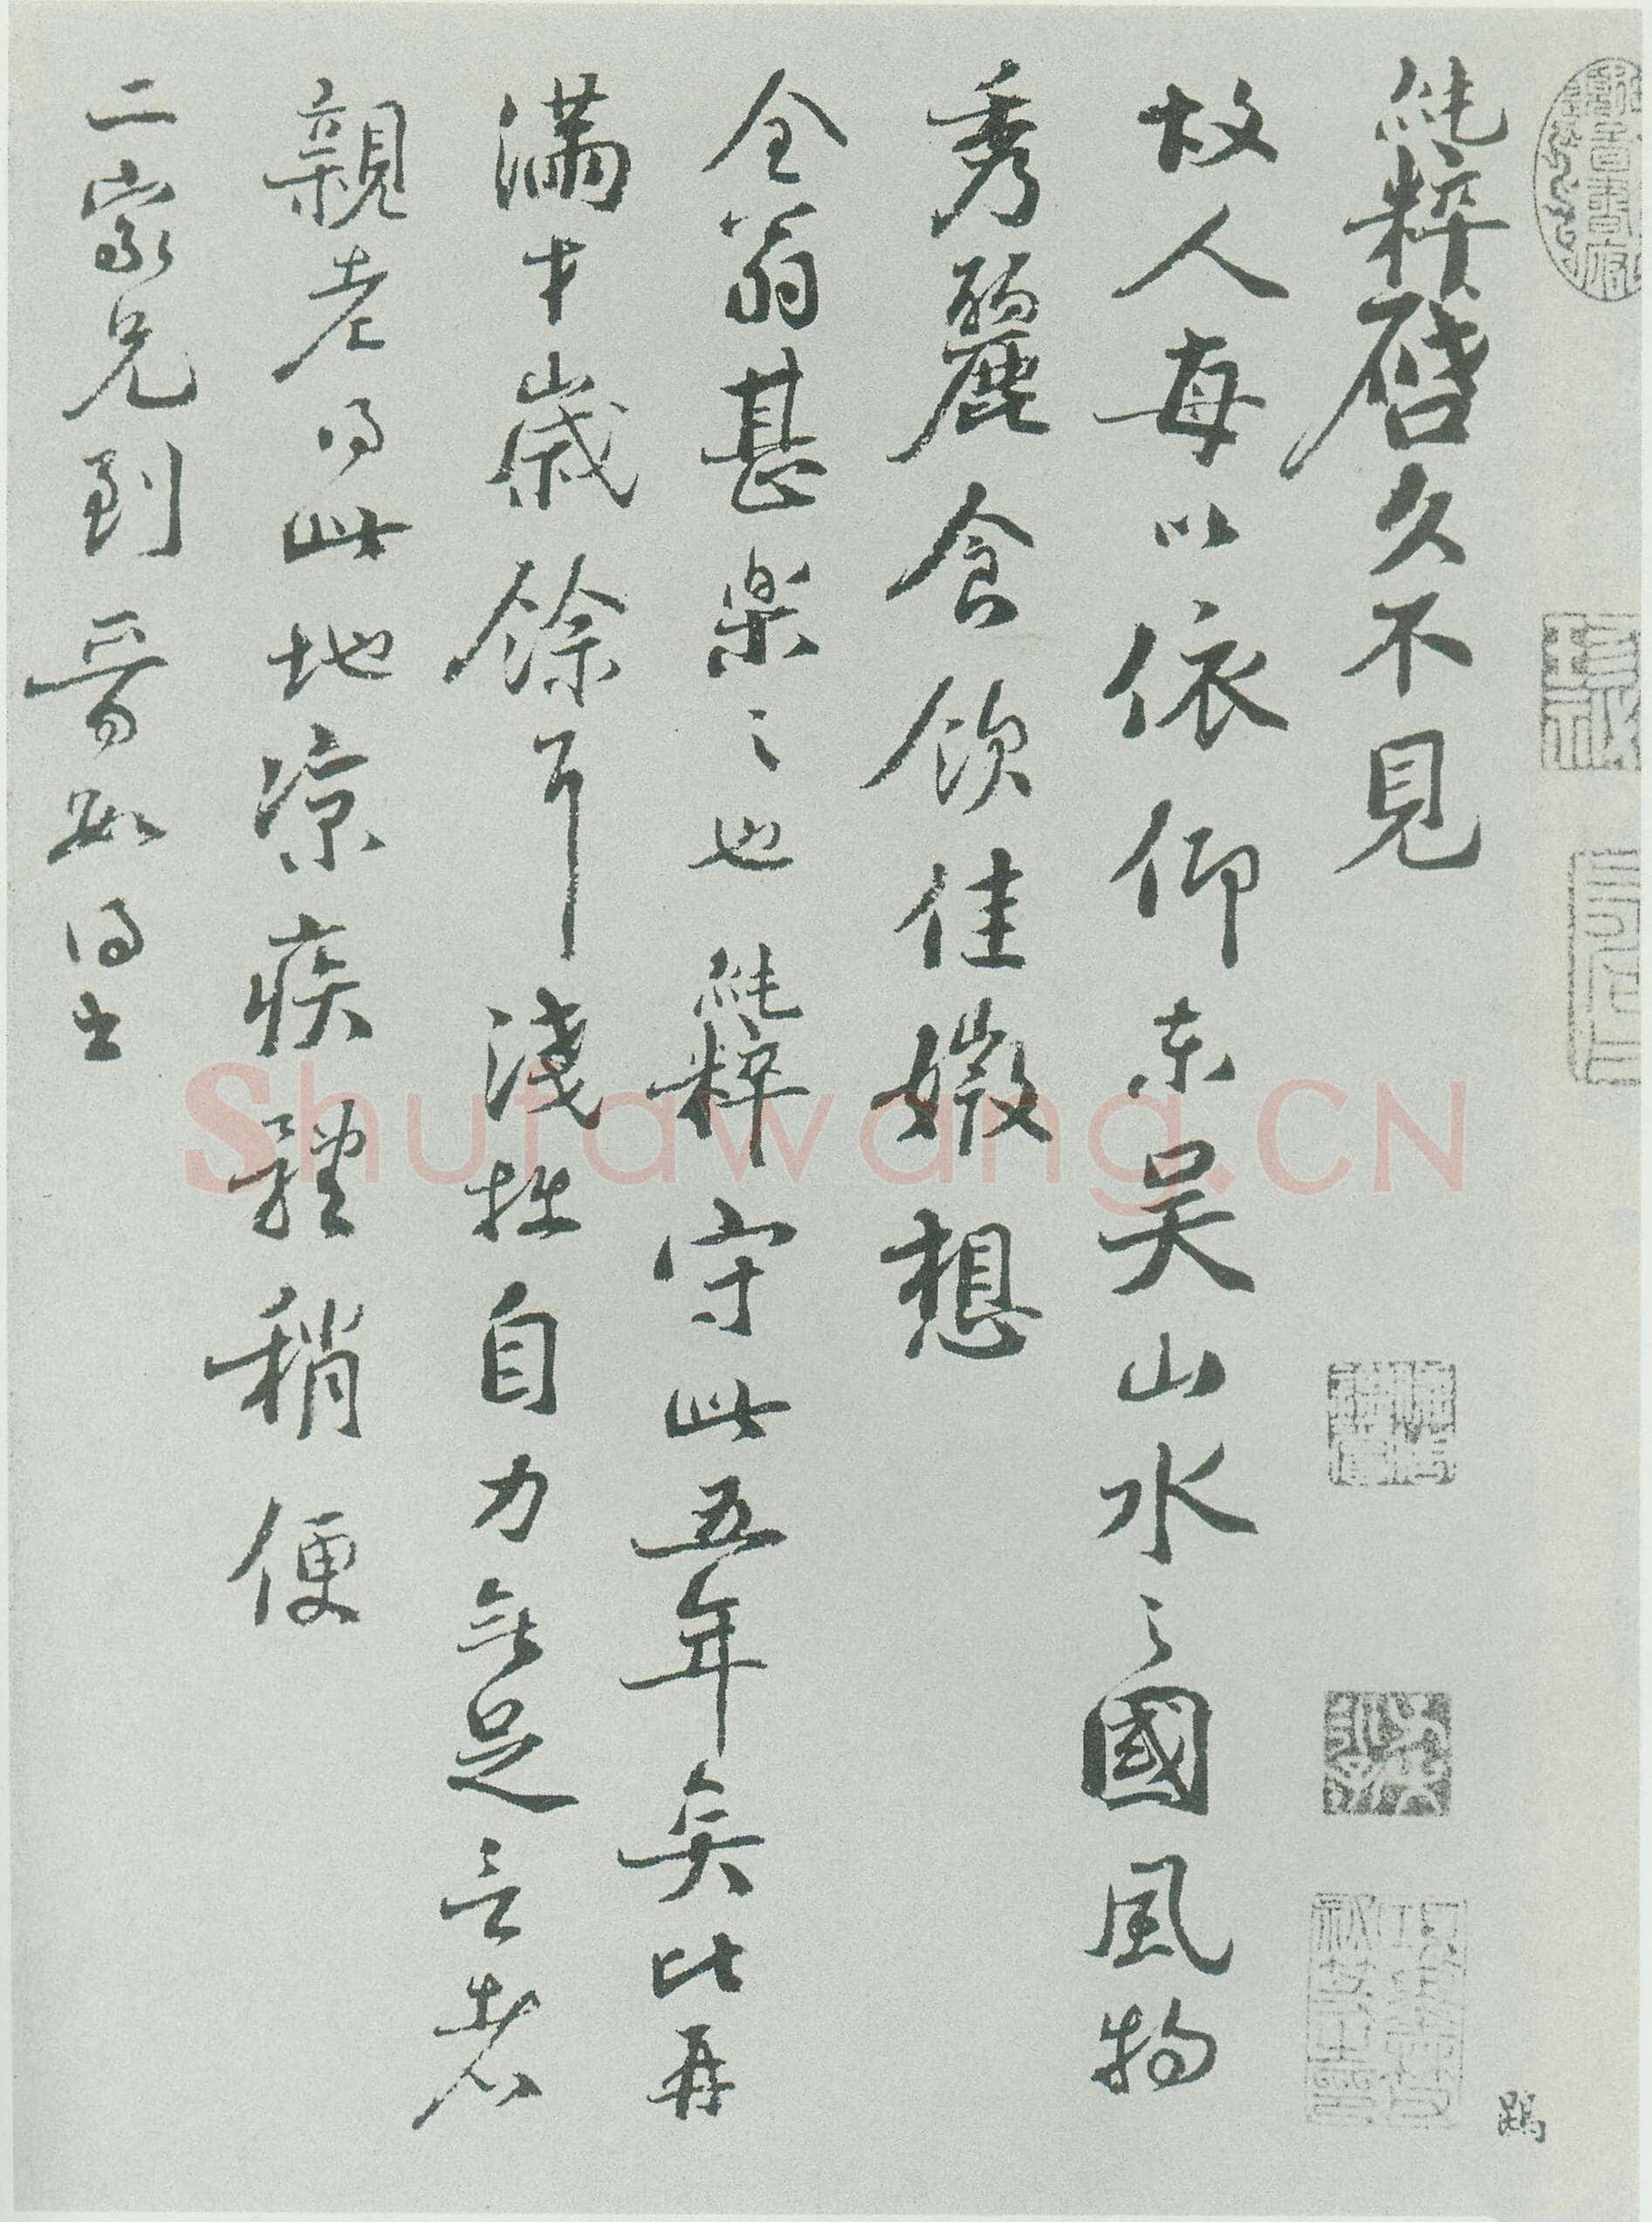 純粹啓久不見
故人每以依仰东吴山水之國風物
秀麗食飲佳媺想
全翁甚樂之也純粹守此五年矣比再
滿才歲餘耳淺拙自力無足言者
親老得此地凉疾體稍便
二家兄到晉如得出
鵾
Shufawang.CN